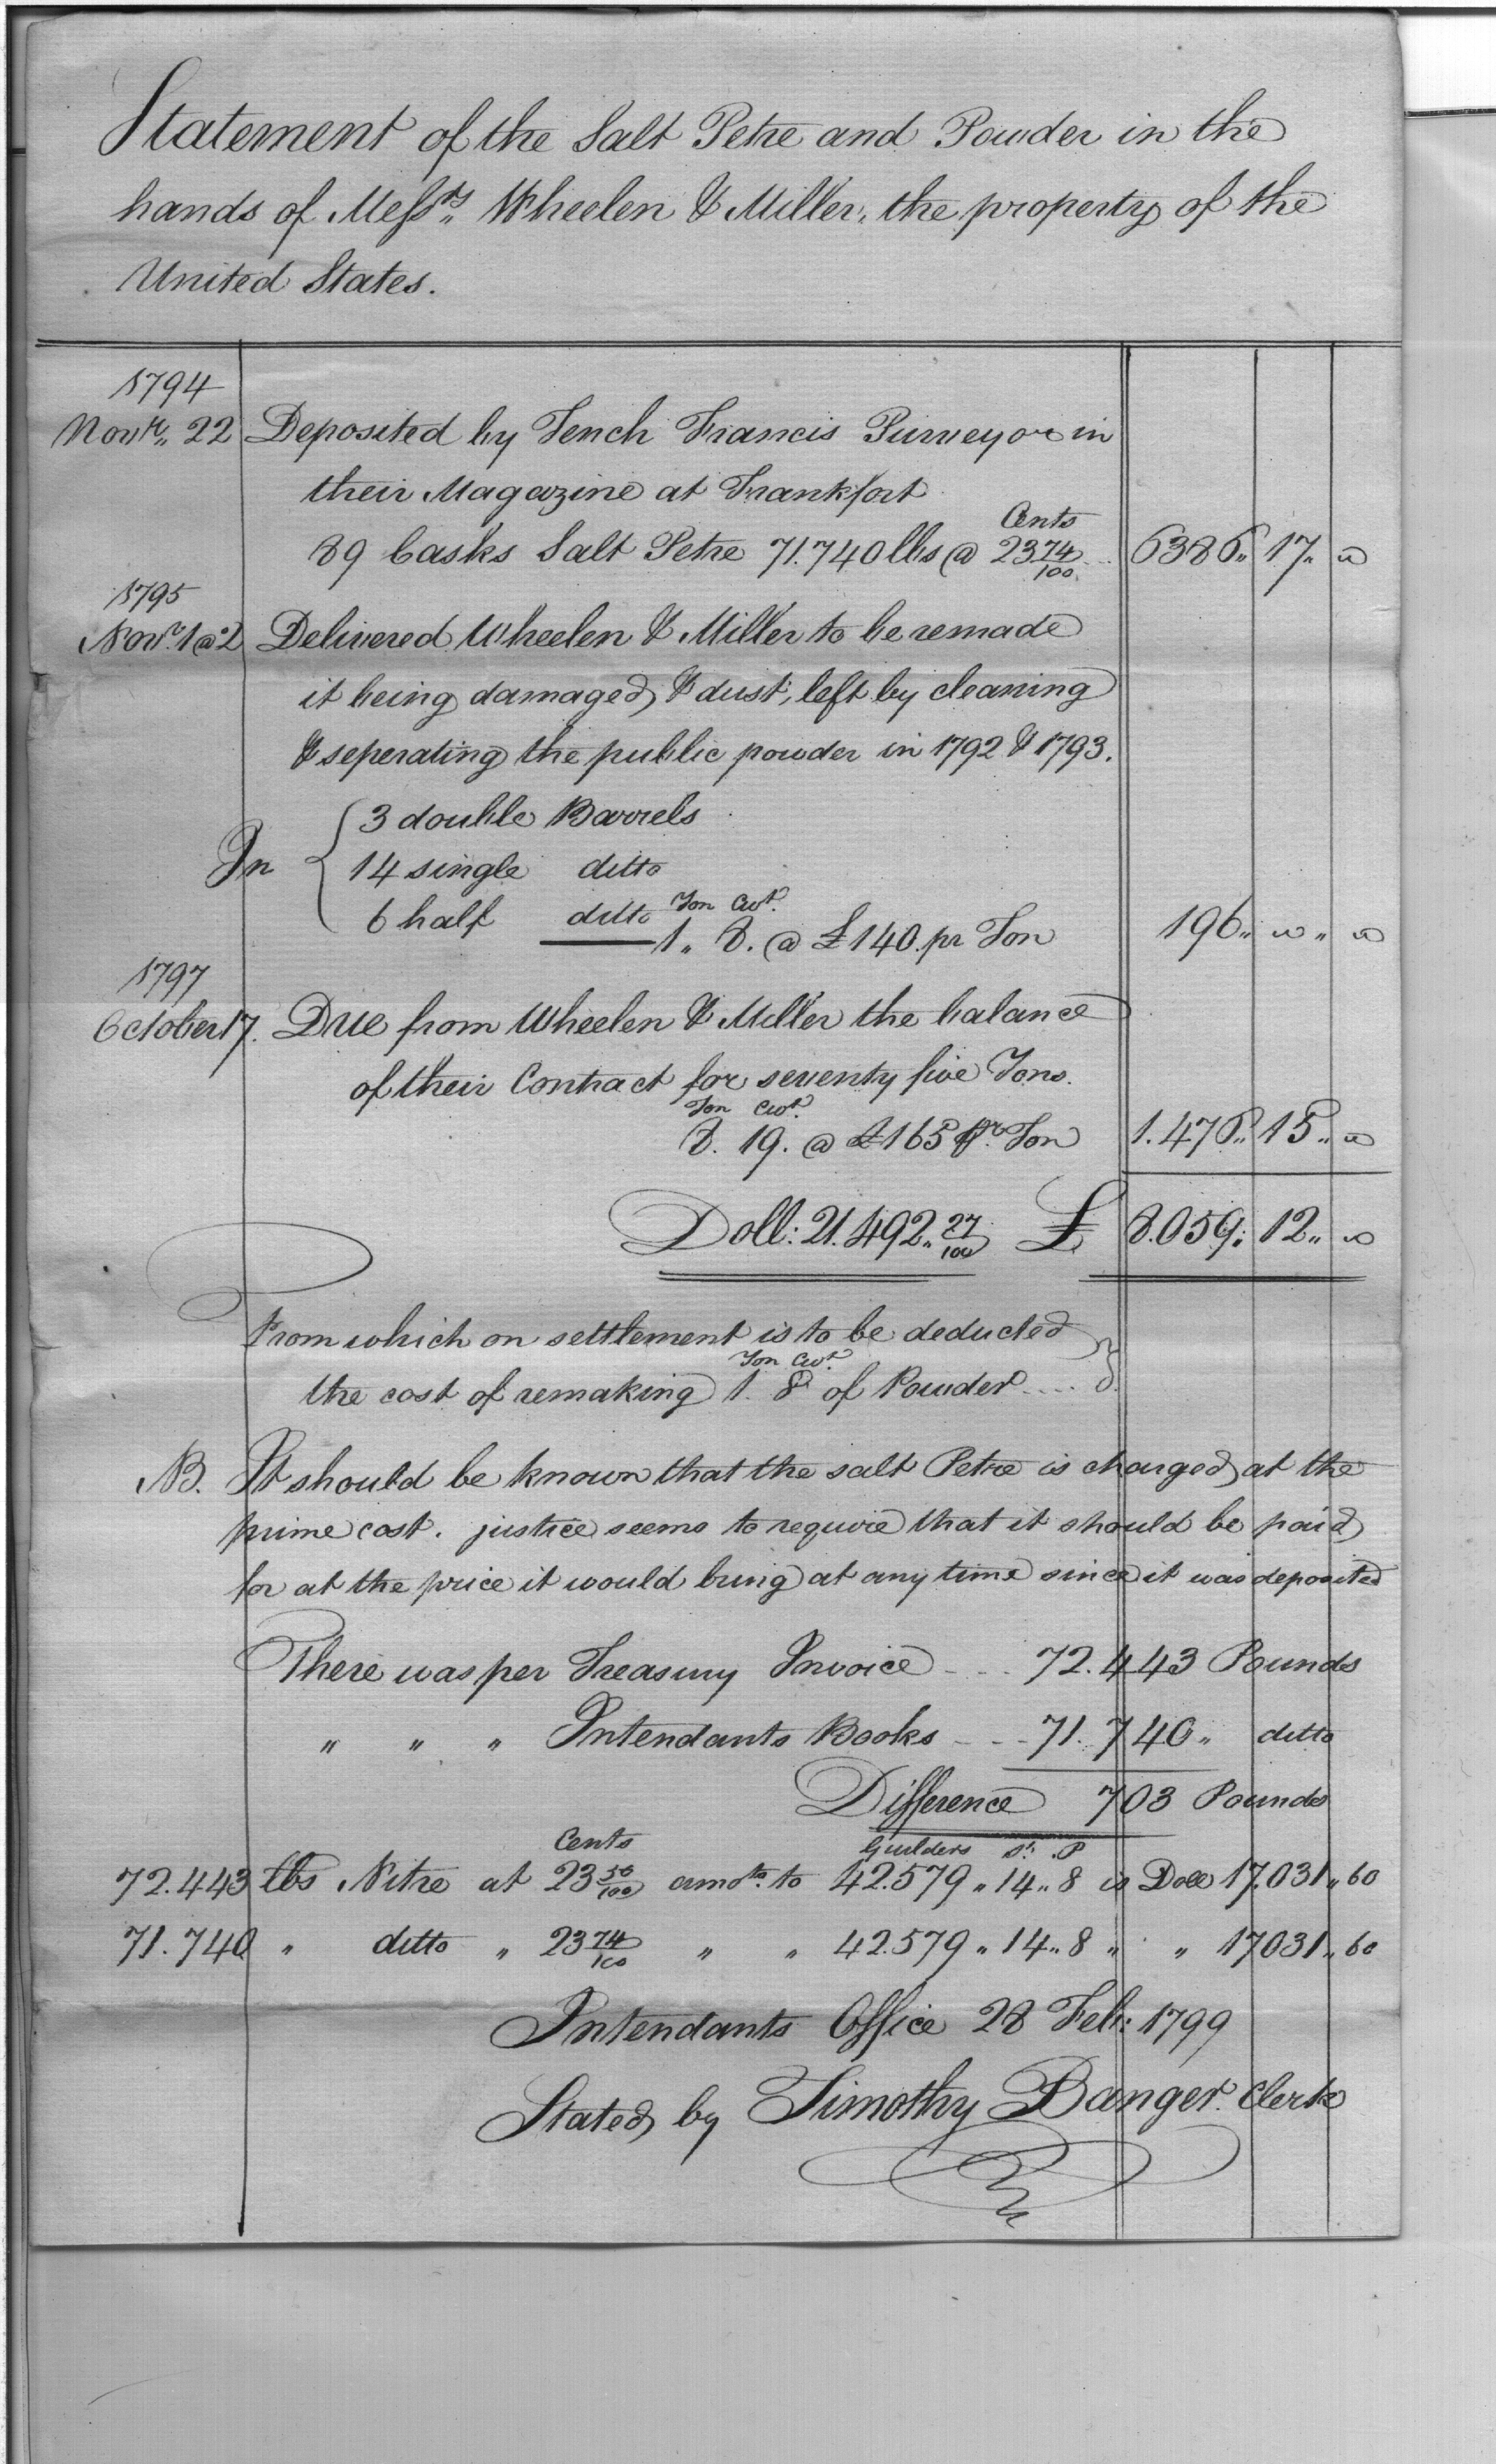 Statement of the Salt Petre and Powder in the
hands of Messrs. Wheelen & Miller, the property of the
United States.
1794
Novr. 22 Deposited by Tench Francis Purveyor in
their Magazine at Frankfort
Cents
89 Casks Salt Petre 71.740 lbs @ 23 74/100 6386 " 17 " "
1795
Novr. 1 @ 2 Delivered Wheelen & Miller to be remade
it being damaged, & dust, left by cleaning
& seperating the public powder in 1792 & 1793.
3 double Barrels
In 14 single ditto
6 half ditto Ton Cwt.
1 " 8. @ £140. pr Ton 196 " " " "
1797
October 17. Due from Wheelen & Miller the balance
of their Contract for seventy five Tons.
Ton Cwt.
8. 19. @ £165 pr. Ton 1.476 " 15 " "
Doll: 21.492 " 27/100 £ 8.059 " 12 " "
From which on settlement is to be deducted
Ton Cwt.
the cost of remaking 1. 8 of Powder ....
NB. It should be known that the salt Petre is charged at the
prime cost. justice seems to require that it should be paid
for at the price it would bring at any time since it was deposited
There was per Treasury Invoice - - - 72.443 Pounds
" " " Intendants Books - - - 71.740 " ditto
Difference 703 Pounds
Cents Guilders St. P
72.443 lbs Nitre at 23 50/100 amots. to 42.579 " 14 " 8 is Doll 17.031 " 60
71.740 " ditto " 23 74/100 " " 42.579 " 14 " 8 " " 17031 " 60
Intendants Office 28 Feb: 1799
Stated by Timothy Banger. Clerk